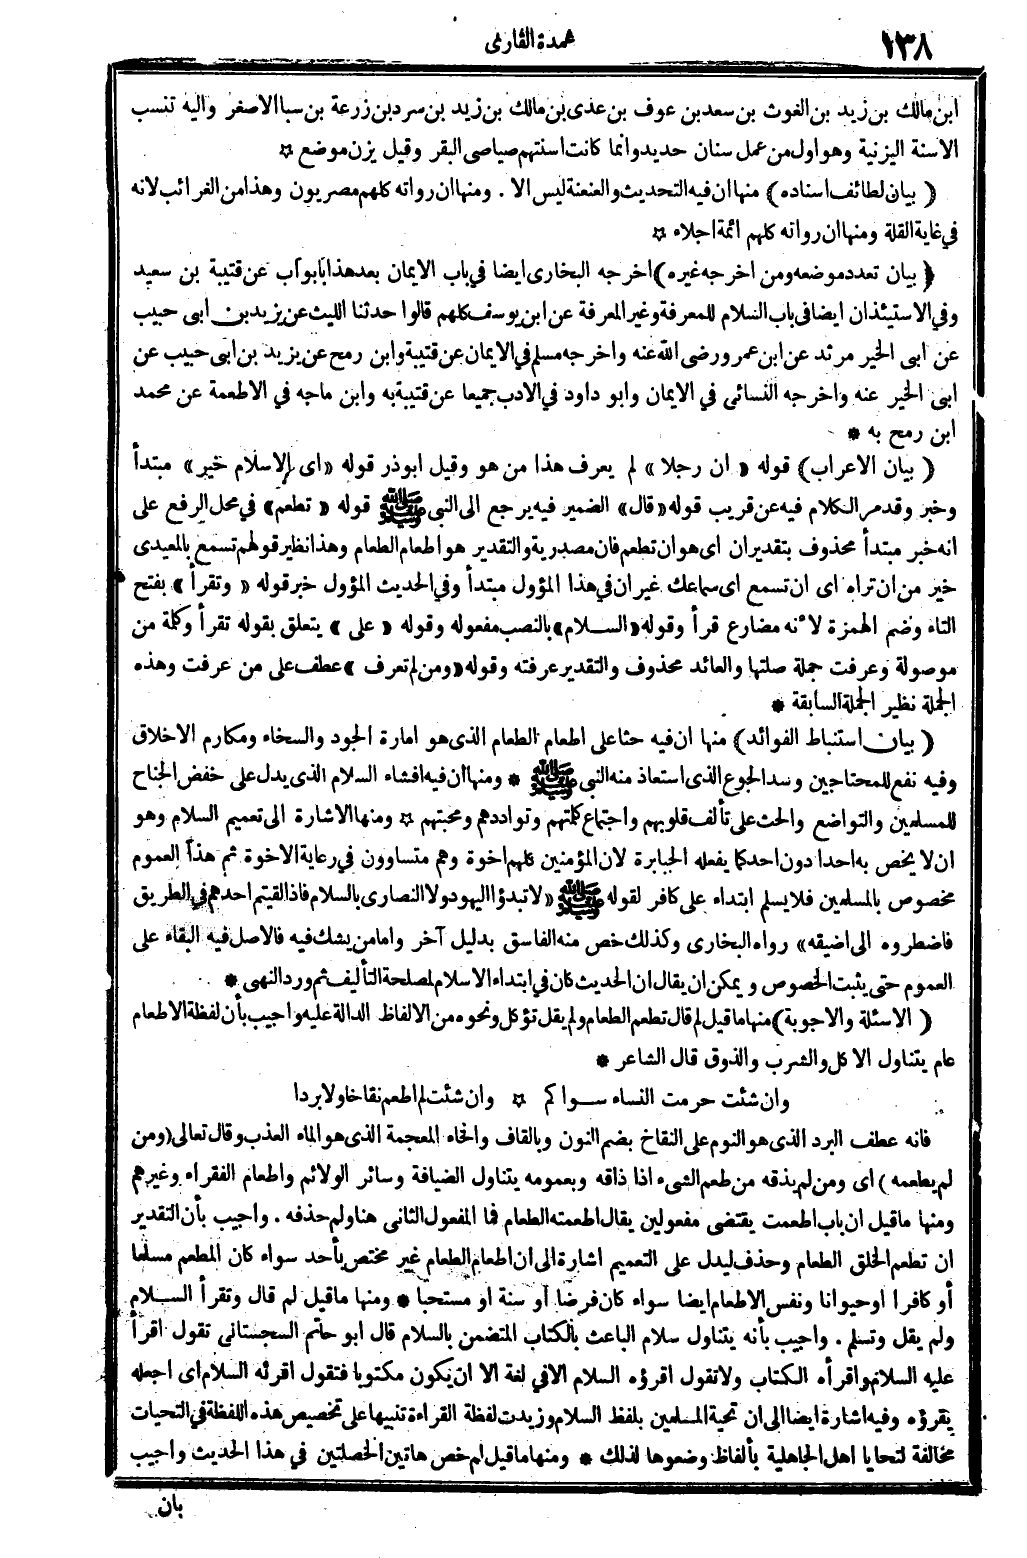 ١٣٨
عمدة القارئ
ابن مالك بن زيد بن الغوث بن سعد بن عوف بن عدى بن مالك بن زيد بن سرد بن زرعة بن سبا الاصغر واليه تنسب
الاسنة اليزنية وهو اول من عمل سنان حديد وانما كانت اسنتهم صياصى البقر وقيل يزن موضع ۞
﴿ بيان لطائف اسناده ﴾ منها ان فيه التحديث والعنعنة ليس الا . ومنها ان رواته كلهم مصريون وهذا من الغرائب لانه
في غاية القلة ومنها ان رواته كلهم ائمة اجلاء ۞
﴿ بيان تعدد موضعه ومن اخرجه غيره ﴾ اخرجه البخارى ايضا في باب الايمان بعد هذا بأبواب عن قتيبة بن سعيد
وفي الاستيئذان ايضا في باب السلام للمعرفة وغير المعرفة عن ابن يوسف كلهم قالوا حدثنا الليث عن يزيد بن ابى حبيب
عن ابى الخير مرثد عن ابن عمرو رضى الله عنه واخرجه مسلم في الايمان عن قتيبة وابن رمح عن يزيد بن ابى حبيب عن
ابى الخير عنه واخرجه النسائى في الايمان وابو داود في الادب جميعا عن قتيبة به وابن ماجه في الاطعمة عن محمد
ابن رمح به *
﴿ بيان الاعراب ﴾ قوله « ان رجلا » لم يعرف هذا من هو وقيل ابو ذر قوله « اى الاسلام خير » مبتدأ
وخبر وقد مر الكلام فيه عن قريب قوله « قال » الضمير فيه يرجع الى النبى ﷺ قوله « تطعم » في محل الرفع على
انه خبر مبتدأ محذوف بتقدير ان اى هو ان تطعم فان مصدرية والتقدير هو اطعام الطعام وهذا نظير قولهم تسمع بالمعيدى
خير من ان تراه اى ان تسمع اى سماعك غير ان في هذا المؤول مبتدأ وفي الحديث المؤول خبر قوله « وتقرأ » بفتح
التاء وضم الهمزة لانه مضارع قرأ وقوله « السلام » بالنصب مفعوله وقوله « على » يتعلق بقوله تقرأ وكلمة من
موصولة وعرفت جملة صلتها والعائد محذوف والتقدير عرفته وقوله « ومن لم تعرف » عطف على من عرفت وهذه
الجملة نظير الجملة السابقة *
﴿ بيان استنباط الفوائد ﴾ منها ان فيه حثا على اطعام الطعام الذى هو امارة الجود والسخاء ومكارم الاخلاق
وفيه نفع للمحتاجين وسد الجوع الذى استعاذ منه النبى ﷺ * ومنها ان فيه افشاء السلام الذى يدل على خفض الجناح
للمسلمين والتواضع والحث على تألف قلوبهم واجتماع كلمتهم وتواددهم ومحبتهم ۞ ومنها الاشارة الى تعميم السلام وهو
ان لا يخص به احدا دون احد كما يفعله الجبابرة لان المؤمنين كلهم اخوة وهم متساوون في رعاية الاخوة ثم هذا العموم
مخصوص بالمسلمين فلا يسلم ابتداء على كافر لقوله ﷺ « لا تبدؤا اليهود ولا النصارى بالسلام فاذا لقيتم احدهم في الطريق
فاضطروه الى اضيقه » رواه البخارى وكذلك خص منه الفاسق بدليل آخر واما من يشك فيه فالاصل فيه البقاء على
العموم حتى يثبت الخصوص ويمكن ان يقال ان الحديث كان في ابتداء الاسلام لمصلحة التأليف ثم ورد النهى *
﴿ الاسئلة والاجوبة ﴾ منها ما قيل لم قال تطعم الطعام ولم يقل تؤكل ونحوه من الالفاظ الدالة عليه واجيب بأن لفظة الاطعام
عام يتناول الاكل والشرب والذوق قال الشاعر *
وان شئت حرمت النساء سواكم ۞ وان شئت لم اطعم نقاخا ولا بردا
فانه عطف البرد الذى هو النوم على النقاخ بضم النون وبالقاف والخاء المعجمة الذى هو الماء العذب وقال تعالى (ومن
لم يطعمه) اى ومن لم يذقه من طعم الشىء اذا ذاقه وبعمومه يتناول الضيافة وسائر الولائم واطعام الفقراء وغيرهم
ومنها ما قيل ان باب اطعمت يقتضى مفعولين يقال اطعمته الطعام فما المفعول الثانى هنا ولم حذفه . واجيب بأن التقدير
ان تطعم الخلق الطعام وحذف ليدل على التعميم اشارة الى ان اطعام الطعام غير مختص بأحد سواء كان المطعم مسلما
أو كافرا او حيوانا ونفس الاطعام ايضا سواء كان فرضا أو سنة او مستحبا * ومنها ما قيل لم قال وتقرأ السلام
ولم يقل وتسلم . واجيب بأنه يتناول سلام الباعث بالكتاب المتضمن بالسلام قال ابو حاتم السجستانى تقول اقرأ
عليه السلام واقرأه الكتاب ولا تقول اقرؤه السلام الا في لغة الا ان يكون مكتوبا فتقول اقرئه السلام اى اجعله
يقرؤه وفيه اشارة ايضا الى ان تحية المسلمين بلفظ السلام وزيدت لفظة القراءة تنبيها على تخصيص هذه اللفظة في التحيات
مخالفة لتحايا اهل الجاهلية بألفاظ وضعوها لذلك * ومنها ما قيل لم خص هاتين الخصلتين في هذا الحديث واجيب
بان